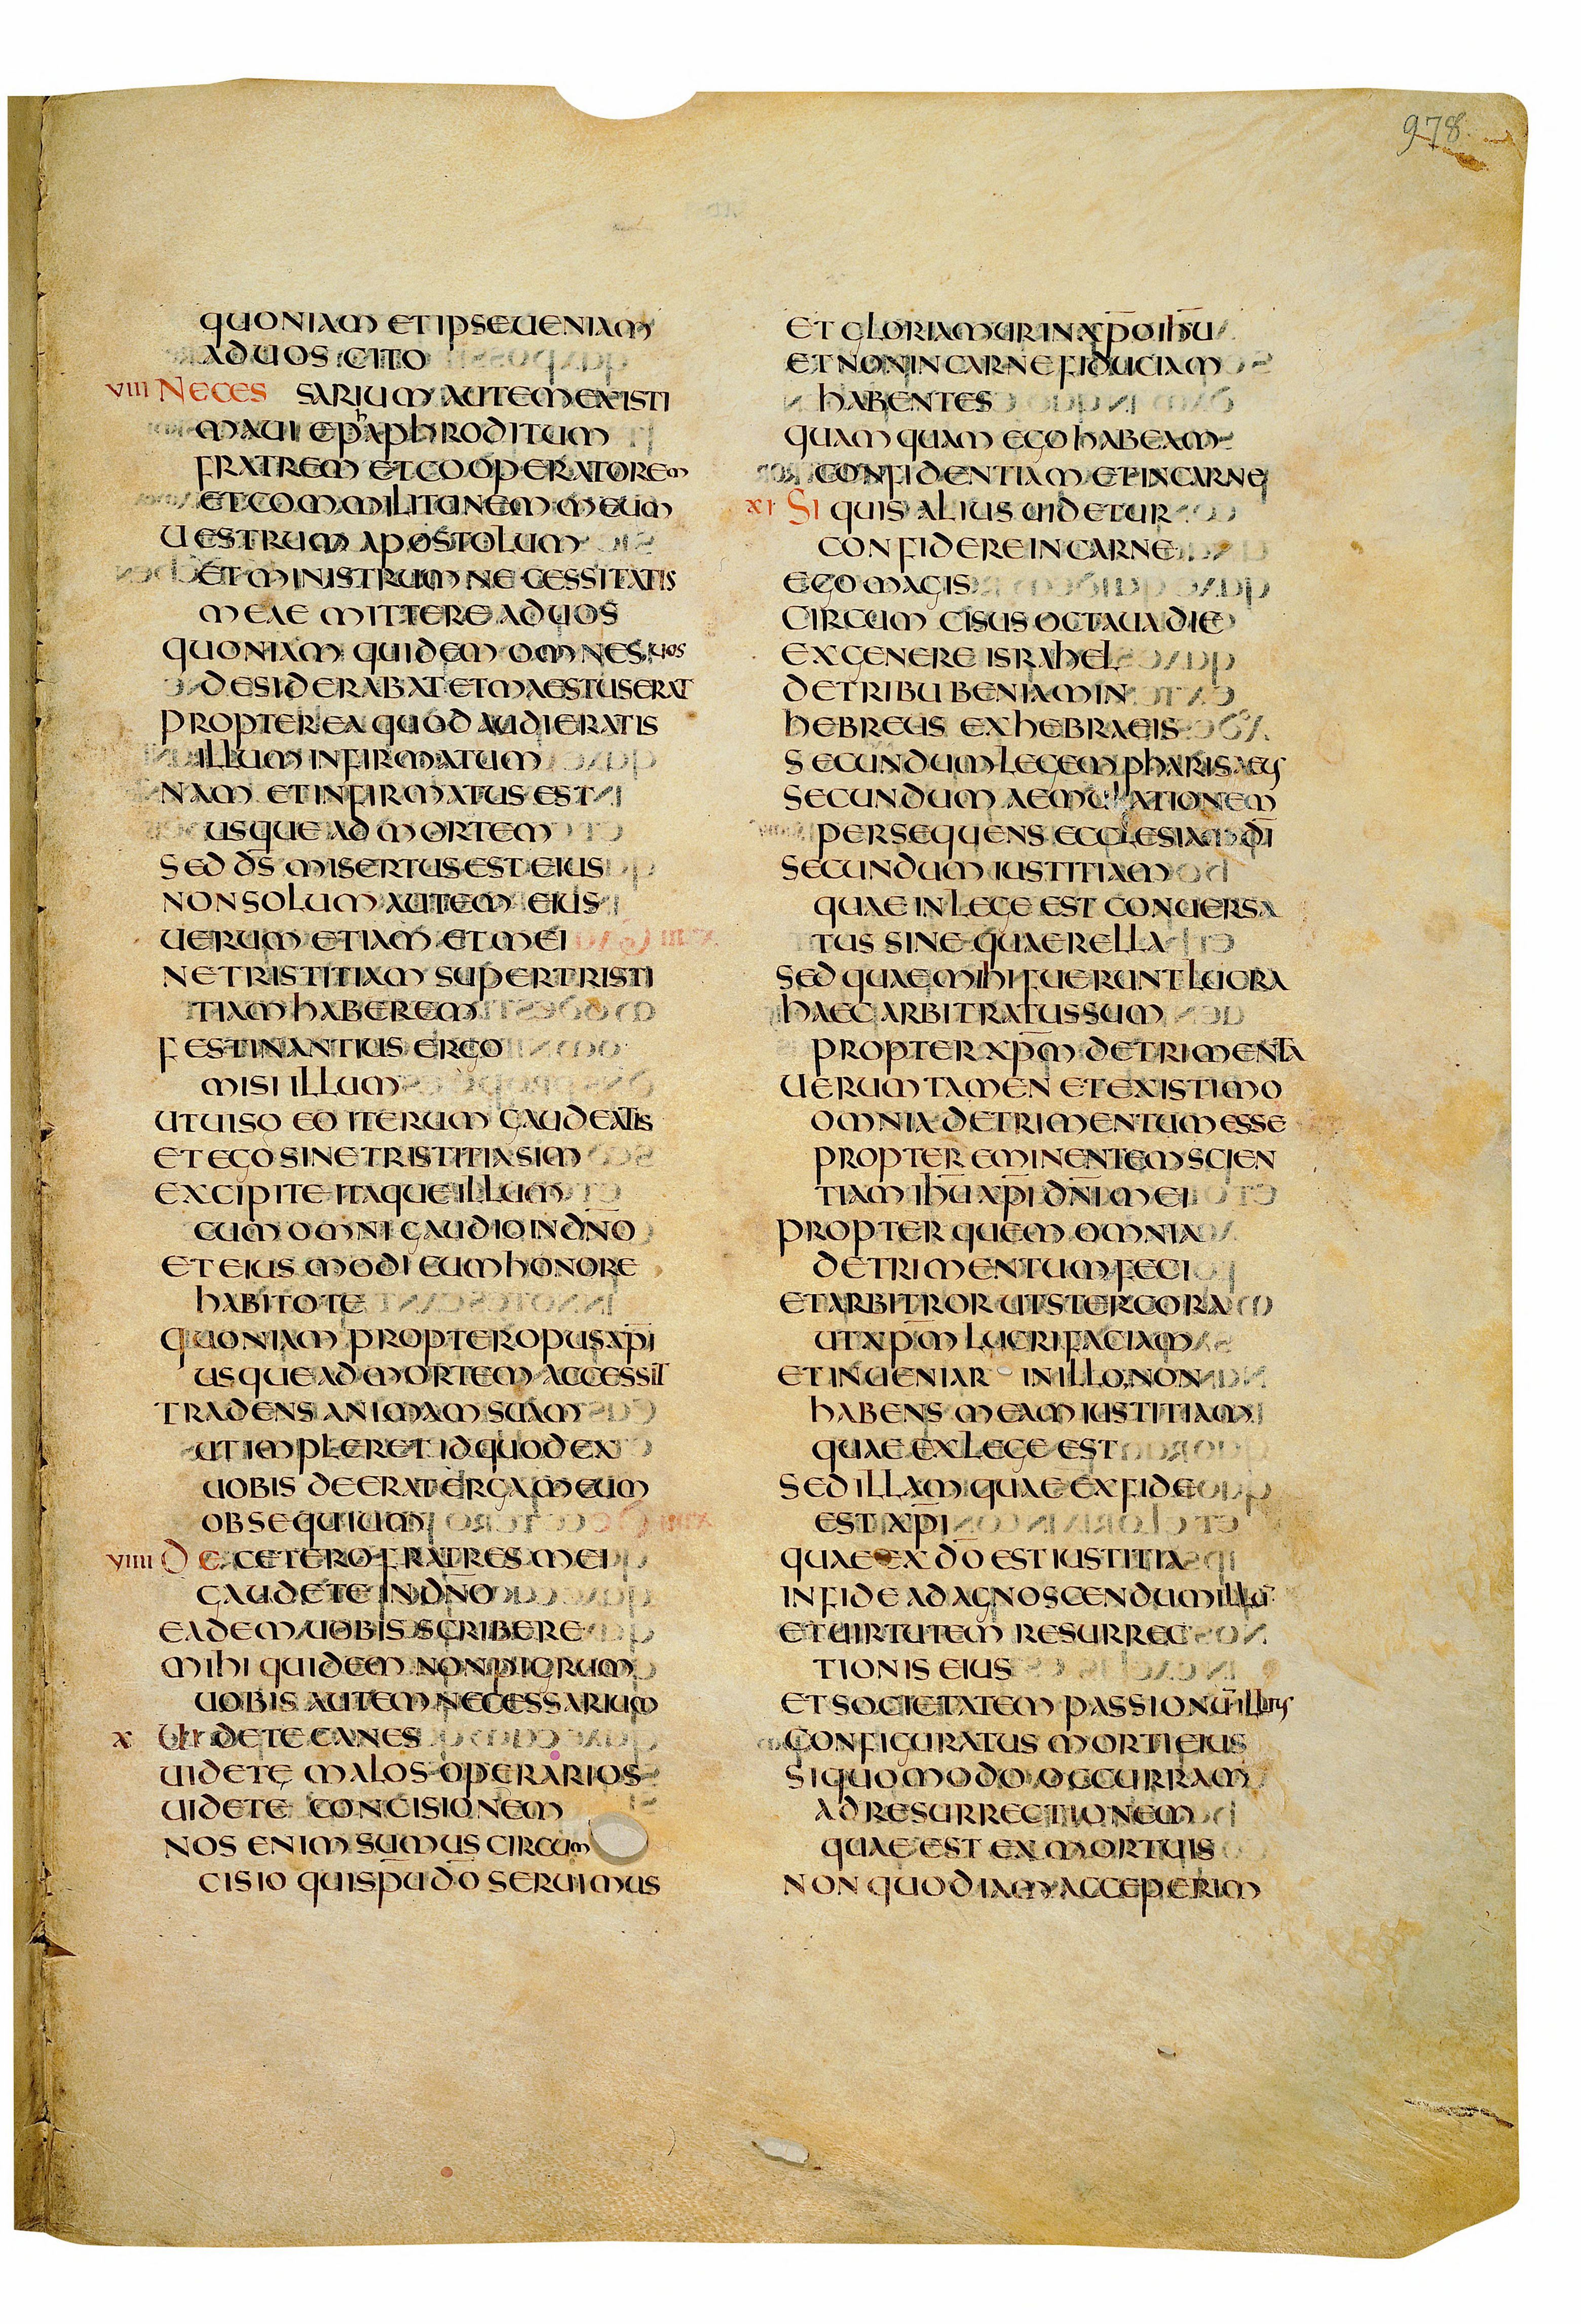 978
QUONIAM ET IPSE UENIAM
AD UOS CITO
VIII NECESSARIUM AUTEM EXISTI
MAUI EPAPHRODITUM
FRATREM ET COOPERATOREM
ET COMMILITONEM MEUM
UESTRUM APOSTOLUM
ET MINISTRUM NECESSITATIS
MEAE MITTERE AD UOS
QUONIAM QUIDEM OMNES UOS
DESIDERABAT ET MAESTUS ERAT
PROPTEREA QUOD AUDIERATIS
ILLUM INFIRMATUM
NAM ET INFIRMATUS EST
USQUE AD MORTEM
SED D̅S̅ MISERTUS EST EIUS
NON SOLUM AUTEM EIUS
UERUM ETIAM ET MEI
NE TRISTITIAM SUPER TRISTI
TIAM HABEREM
FESTINANTIUS ERGO
MISI ILLUM
UT UISO EO ITERUM GAUDEATIS
ET EGO SINE TRISTITIA SIM
EXCIPITE ITAQUE ILLUM
CUM OMNI GAUDIO IN D̅N̅O
ET EIUSMODI CUM HONORE
HABITOTE
QUONIAM PROPTER OPUS X̅P̅I
USQUE AD MORTEM ACCESSIT
TRADENS ANIMAM SUAM
UT IMPLERET ID QUOD EX
UOBIS DEERAT ERGA MEUM
OBSEQUIUM
VIIII DE CETERO FRATRES MEI
GAUDETE IN D̅N̅O
EADEM UOBIS SCRIBERE
MIHI QUIDEM NON PIGRUM
UOBIS AUTEM NECESSARIUM
X UIDETE CANES
UIDETE MALOS OPERARIOS
UIDETE CONCISIONEM
NOS ENIM SUMUS CIRCUM
CISIO QUI S̅P̅U D̅O̅ SERUIMUS
ET GLORIAMUR IN X̅P̅O I̅H̅U
ET NON IN CARNE FIDUCIAM
HABENTES
QUAMQUAM EGO HABEAM
CONFIDENTIAM ET IN CARNE
XI SI QUIS ALIUS UIDETUR
CONFIDERE IN CARNE
EGO MAGIS
CIRCUMCISUS OCTAUA DIE
EX GENERE ISRAHEL
DE TRIBU BENIAMIN
HEBREUS EX HEBRAEIS
SECUNDUM LEGEM PHARISAEUS
SECUNDUM AEMULATIONEM
PERSEQUENS ECCLESIAM D̅I̅
SECUNDUM IUSTITIAM
QUAE IN LEGE EST CONUERSA
TUS SINE QUAERELLA
SED QUAE MIHI FUERUNT LUCRA
HAEC ARBITRATUS SUM
PROPTER X̅P̅M DETRIMENTA
UERUMTAMEN ET EXISTIMO
OMNIA DETRIMENTUM ESSE
PROPTER EMINENTEM SCIEN
TIAM I̅H̅U X̅P̅I D̅N̅I MEI
PROPTER QUEM OMNIA
DETRIMENTUM FECI
ET ARBITROR UT STERCORA
UT X̅P̅M LUCRI FACIAM
ET INUENIAR IN ILLO NON
HABENS MEAM IUSTITIAM
QUAE EX LEGE EST
SED ILLAM QUAE EX FIDE
EST X̅P̅I
QUAE EX D̅O̅ EST IUSTITIA
IN FIDE AD AGNOSCENDUM ILLŪ
ET UIRTUTEM RESURREC
TIONIS EIUS
ET SOCIETATEM PASSIONŪ ILLIUS
CONFIGURATUS MORTI EIUS
SI QUO MODO OCCURRAM
AD RESURRECTIONEM
QUAE EST EX MORTUIS
NON QUOD IAM ACCEPERIM